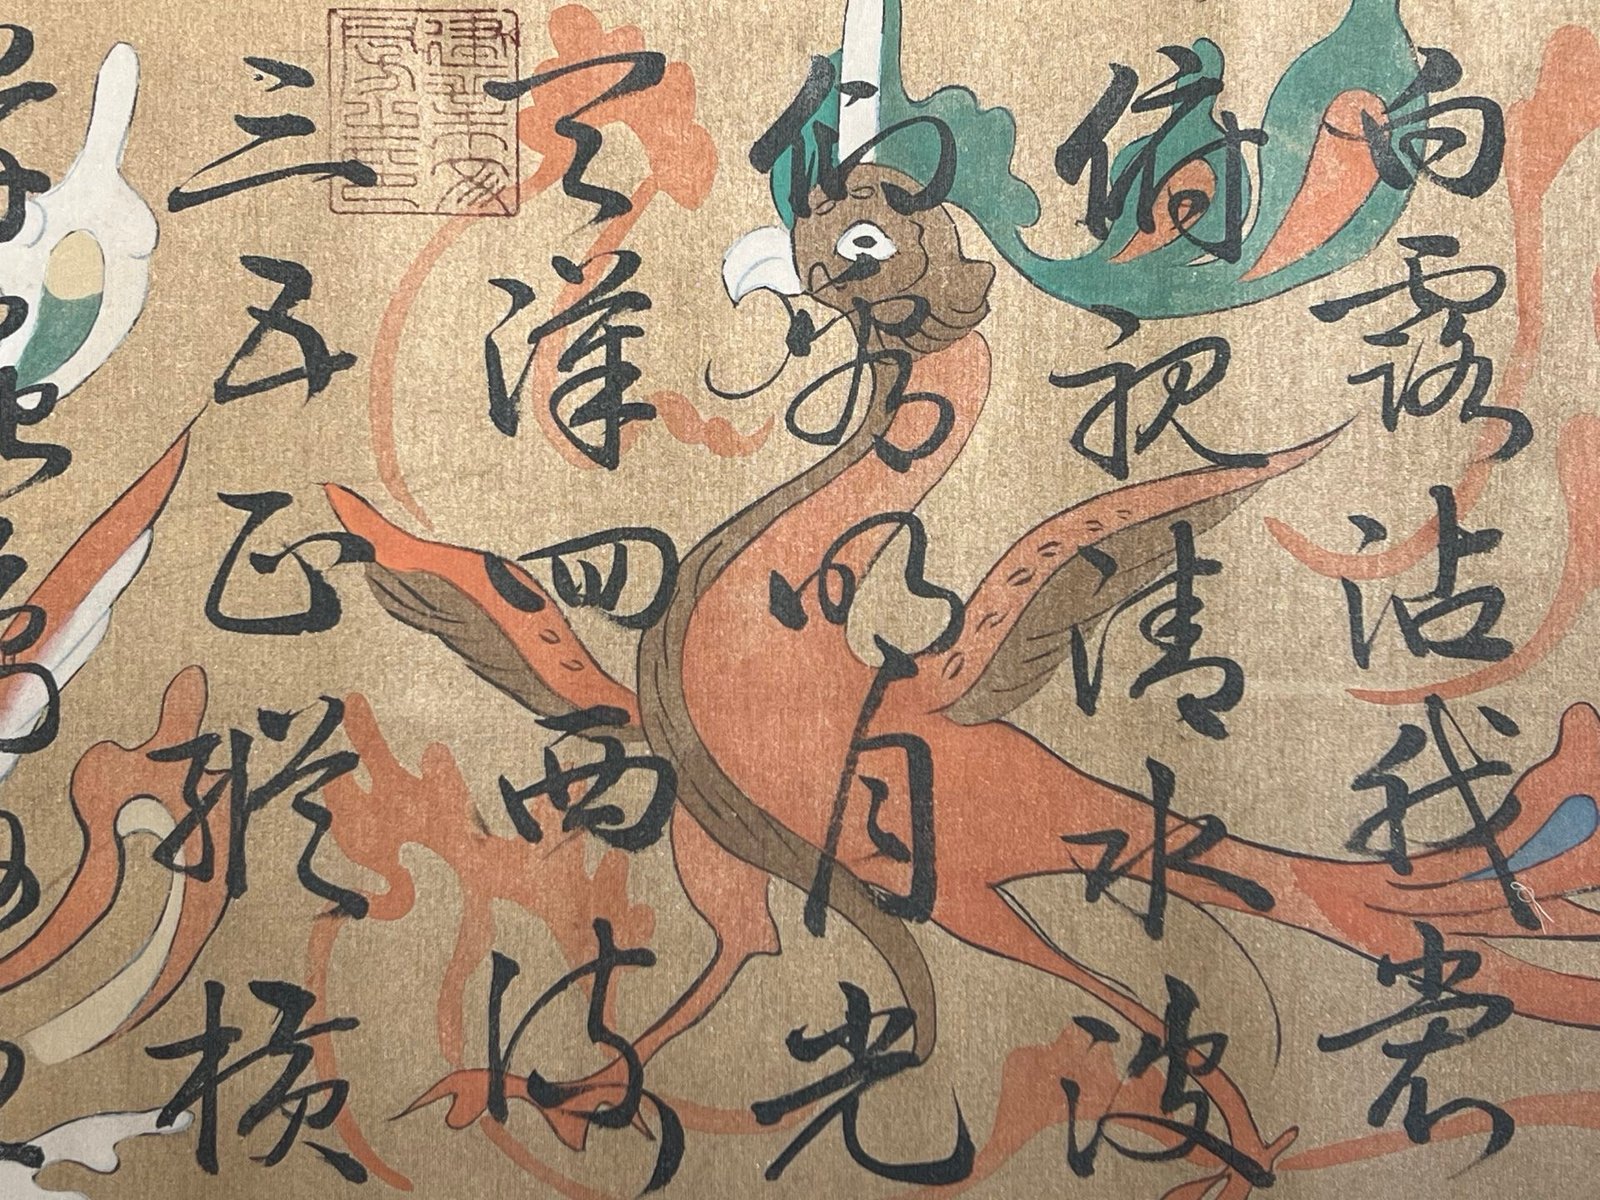 白露沾我裳
俯視清水波
仰看明月光
天漢回西流
三五正縱橫